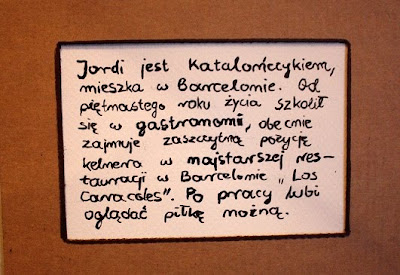 Jordi jest Katalończykiem,
mieszka w Barcelonie. Od
piętnastego roku życia szkolił
się w gastronomii, obecnie
zajmuje zaszczytną pozycję
kelnera w najstarszej res-
tauracji w Barcelonie „Los
Caracoles". Po pracy lubi
oglądać piłkę nożną.